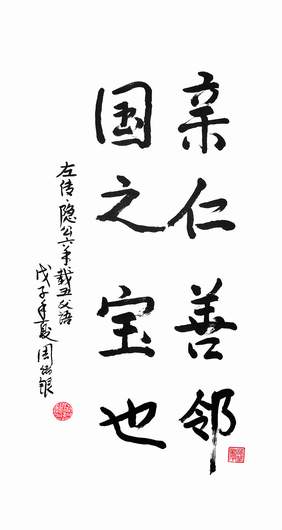 亲仁善邻
国之宝也
左传·隐公六年载五父语
戊子年夏周